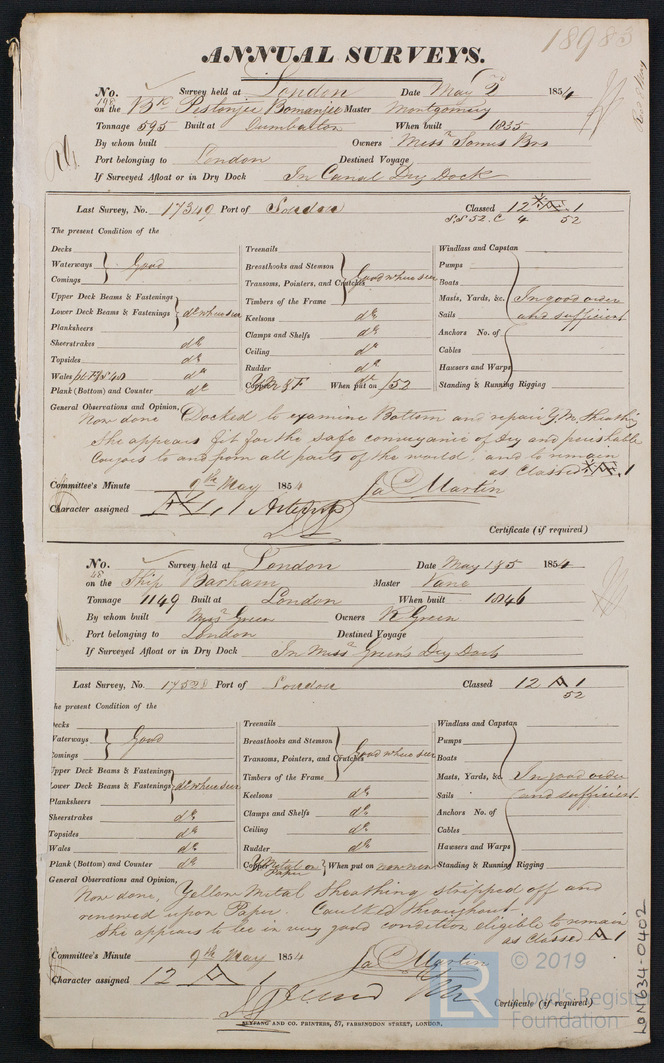 18983
ANNUAL SURVEYS.
No. 198 Survey held at London Date May 2d 1854
on the Bk Pestonjee Bomanjee Master Montgomery
Tonnage 595 Built at Dumbarton When built 1835
By whom built Owners Messrs Somes Bros
Port belonging to London Destined Voyage
If Surveyed Afloat or in Dry Dock In Canal Dry Dock
Last Survey, No. 17349 Port of London Classed 12 A 1
S.S 52. C 4 52
The present Condition of the
Decks
Waterways } Good
Comings
Upper Deck Beams & Fastenings
Lower Deck Beams & Fastenings } do where seen
Planksheers
Sheerstrakes do
Topsides do
Wales do
Plank (Bottom) and Counter do
Treenails
Breasthooks and Stemson
Transoms, Pointers, and Crutches } Good where seen
Timbers of the Frame
Keelsons do
Clamps and Shelfs do
Ceiling do
Rudder do
Copper YM & F When put on /52
Windlass and Capstan
Pumps
Boats
Masts, Yards, &c. In good order
Sails and sufficient
Anchors No. of
Cables
Hausers and Warps
Standing & Running Rigging
General Observations and Opinion, Now done Docked to examine Bottom and repair Y.M. Sheathing
She appears fit for the safe conveyance of Dry and perishable
Cargos to and from all parts of the world, and to remain
as Classed A 1
Committee's Minute 9th May 1854 Jas Martin
Character assigned Æ 1
Certificate (if required)
No. 48 Survey held at London Date May 1 & 5 1854
on the Ship Barham Master Vane
Tonnage 1149 Built at London When built 1846
By whom built Messrs Green Owners R Green
Port belonging to London Destined Voyage
If Surveyed Afloat or in Dry Dock In Messrs Green's Dry Dock
Last Survey, No. Port of London Classed 12 A 1
52
he present Condition of the
ecks
Waterways } Good
omings
pper Deck Beams & Fastenings
ower Deck Beams & Fastenings } do where seen
Planksheers
Sheerstrakes do
Topsides do
Wales do
Plank (Bottom) and Counter do
Treenails
Breasthooks and Stemson
Transoms, Pointers, and Crutches } Good where seen
Timbers of the Frame
Keelsons do
Clamps and Shelfs do
Ceiling do
Rudder do
Copper Y Metal on Paper } When put on now new
Windlass and Capstan
Pumps
Boats
Masts, Yards, &c. In good order
Sails and sufficient
Anchors No. of
Cables
Hausers and Warps
Standing & Running Rigging
General Observations and Opinion, Now done, Yellow Metal Sheathing stripped off and
renewed upon Paper. Caulked throughout.
She appears to be in very good condition eligible to remain
as Classed A 1
Committee's Minute 9th May 1854 Jas Martin
Character assigned 12 A 1
Certificate (if required)
SEYFANG AND CO. PRINTERS, 57, FARRINGDON STREET, LONDON.
LR
© 2019
Lloyd's Register
Foundation
LON634-0402